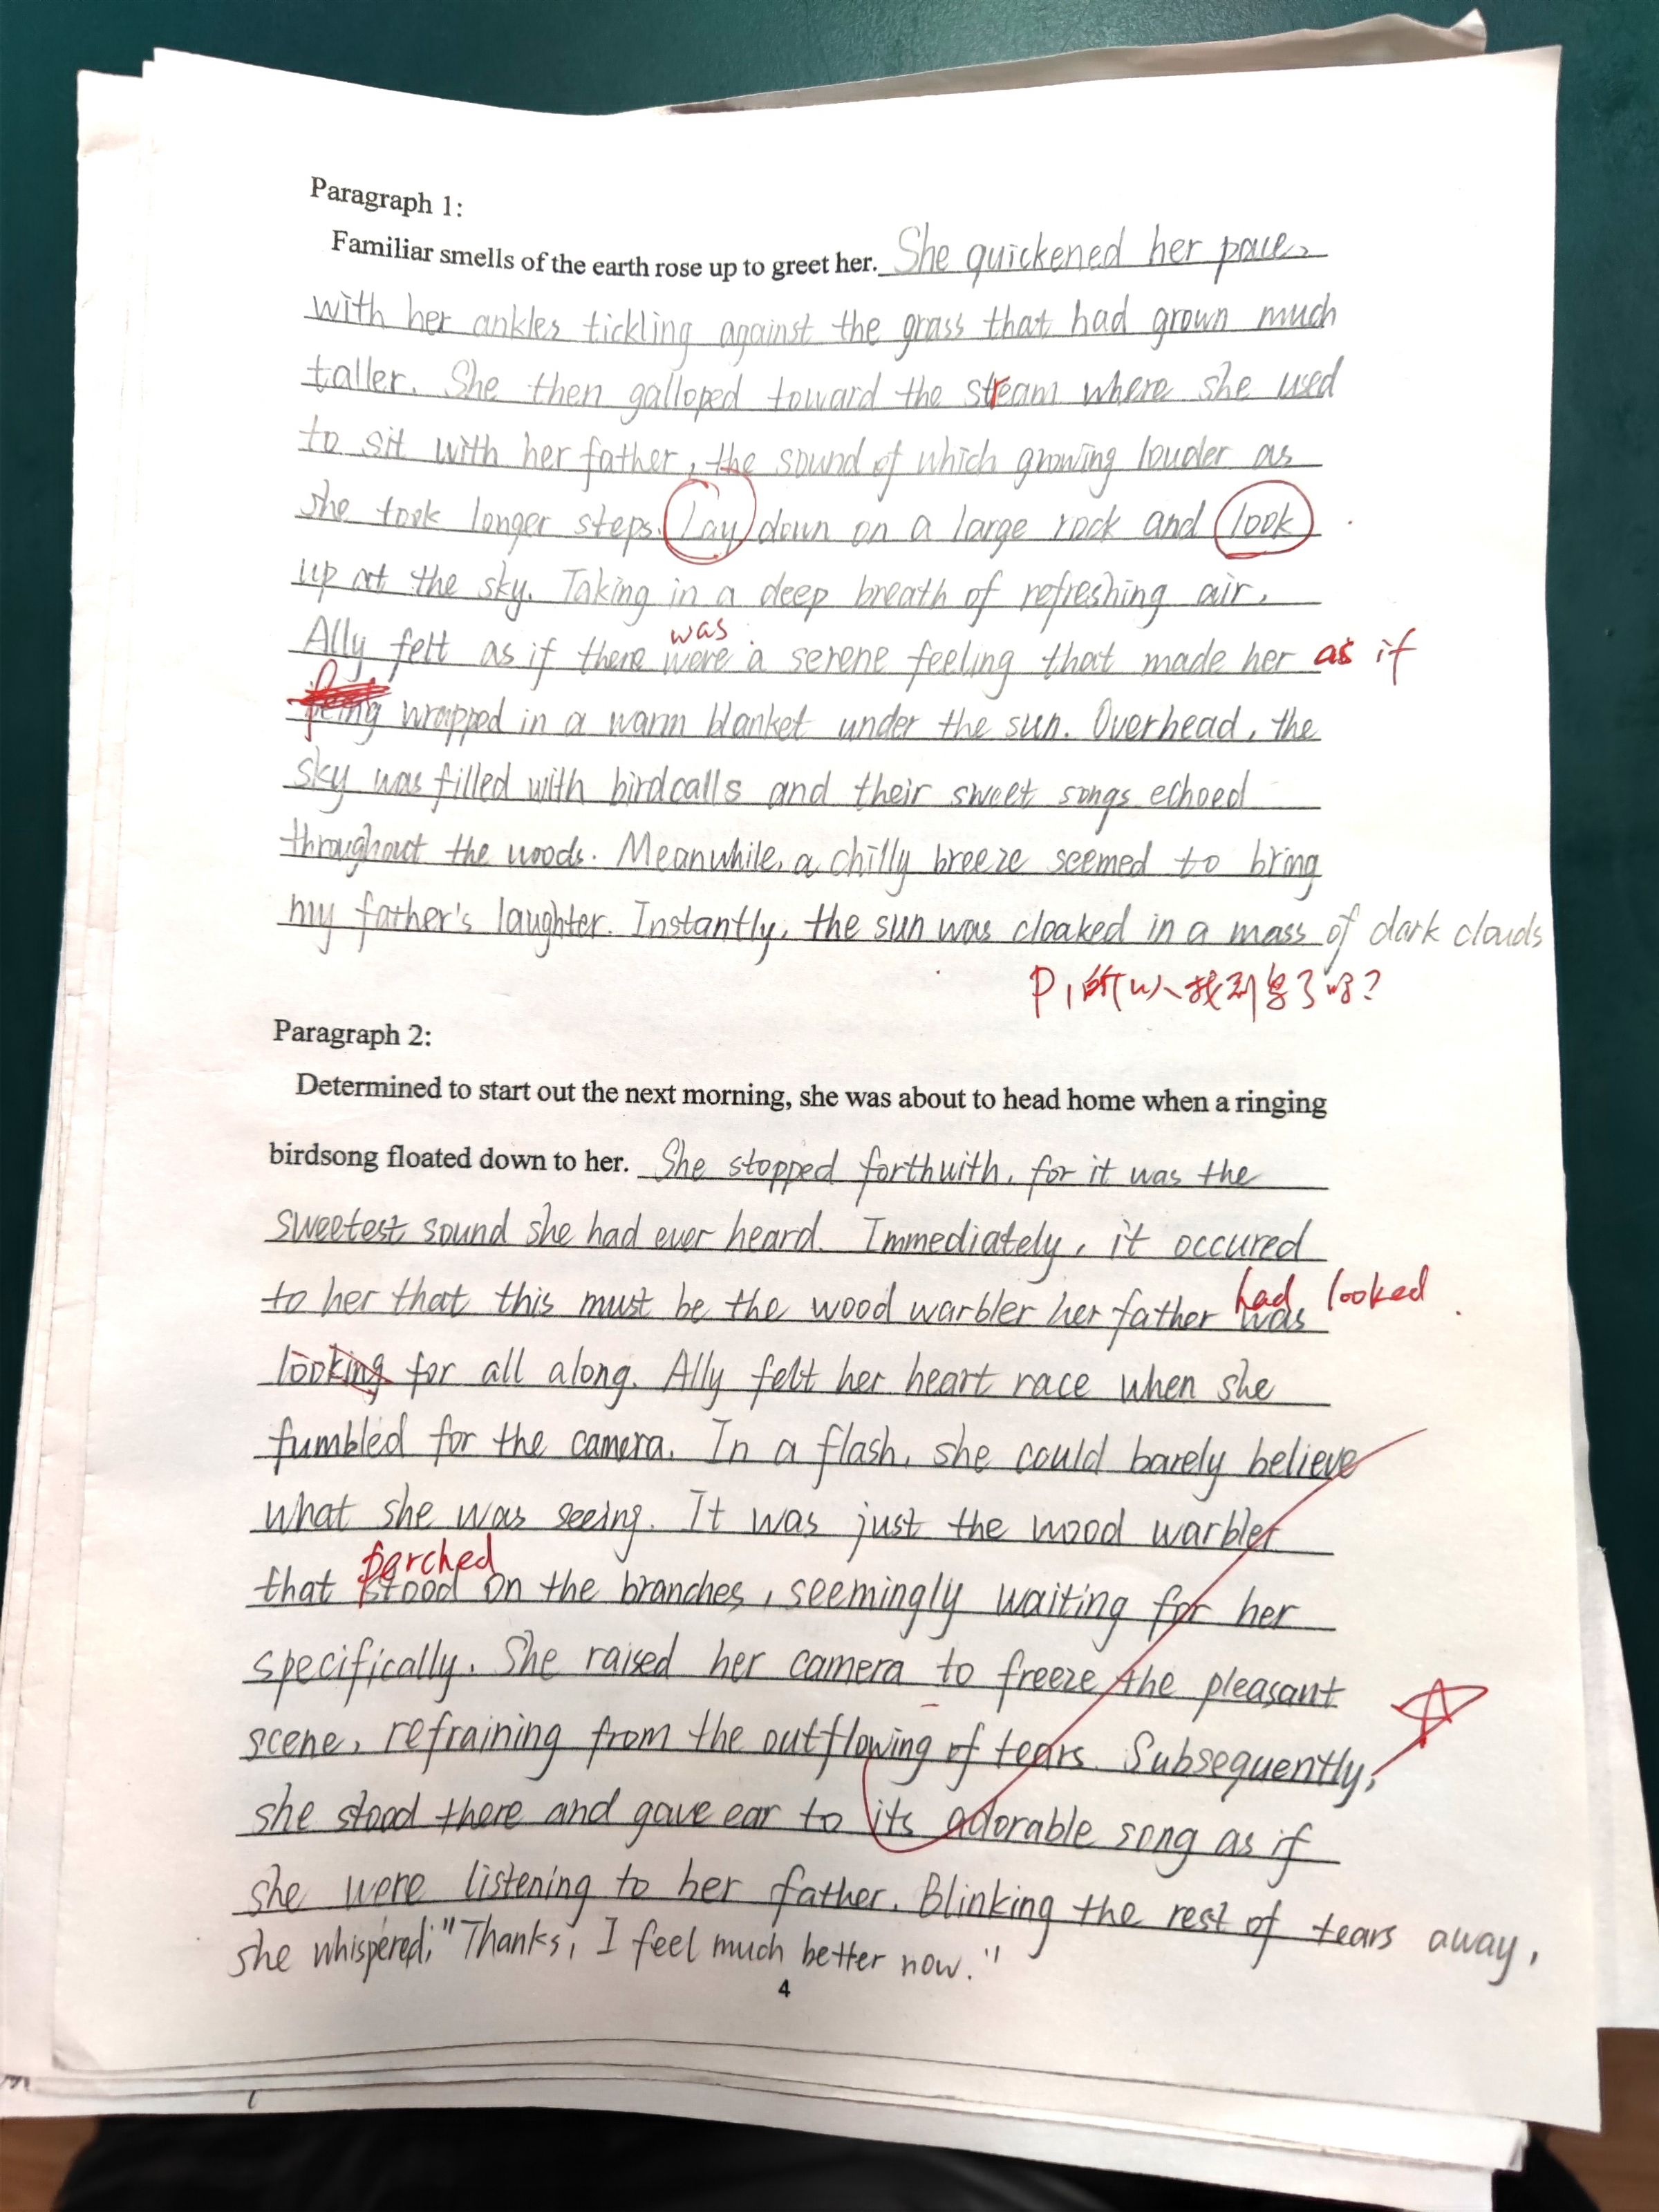 Paragraph 1:
Familiar smells of the earth rose up to greet her. She quickened her pace,
with her ankles tickling against the grass that had grown much
taller. She then galloped toward the stream where she used
to sit with her father, the sound of which growing louder as
she took longer steps. Lay down on a large rock and look
up at the sky. Taking in a deep breath of refreshing air,
was
Ally felt as if there were a serene feeling that made her as if
wrapped in a warm blanket under the sun. Overhead, the
sky was filled with birdcalls and their sweet songs echoed
throughout the woods. Meanwhile, a chilly breeze seemed to bring
my father's laughter. Instantly, the sun was cloaked in a mass of dark clouds
P1所以找到鸟了吗?
Paragraph 2:
Determined to start out the next morning, she was about to head home when a ringing
birdsong floated down to her. She stopped forthwith, for it was the
sweetest sound she had ever heard. Immediately, it occured
had looked
to her that this must be the wood warbler her father was
looking for all along. Ally felt her heart race when she
fumbled for the camera. In a flash, she could barely believe
what she was seeing. It was just the wood warbler
perched
that stood on the branches, seemingly waiting for her
specifically. She raised her camera to freeze the pleasant
scene, refraining from the outflowing of tears. Subsequently,
she stood there and gave ear to its adorable song as if
she were listening to her father. Blinking the rest of tears away,
she whispered, "Thanks, I feel much better now."
4